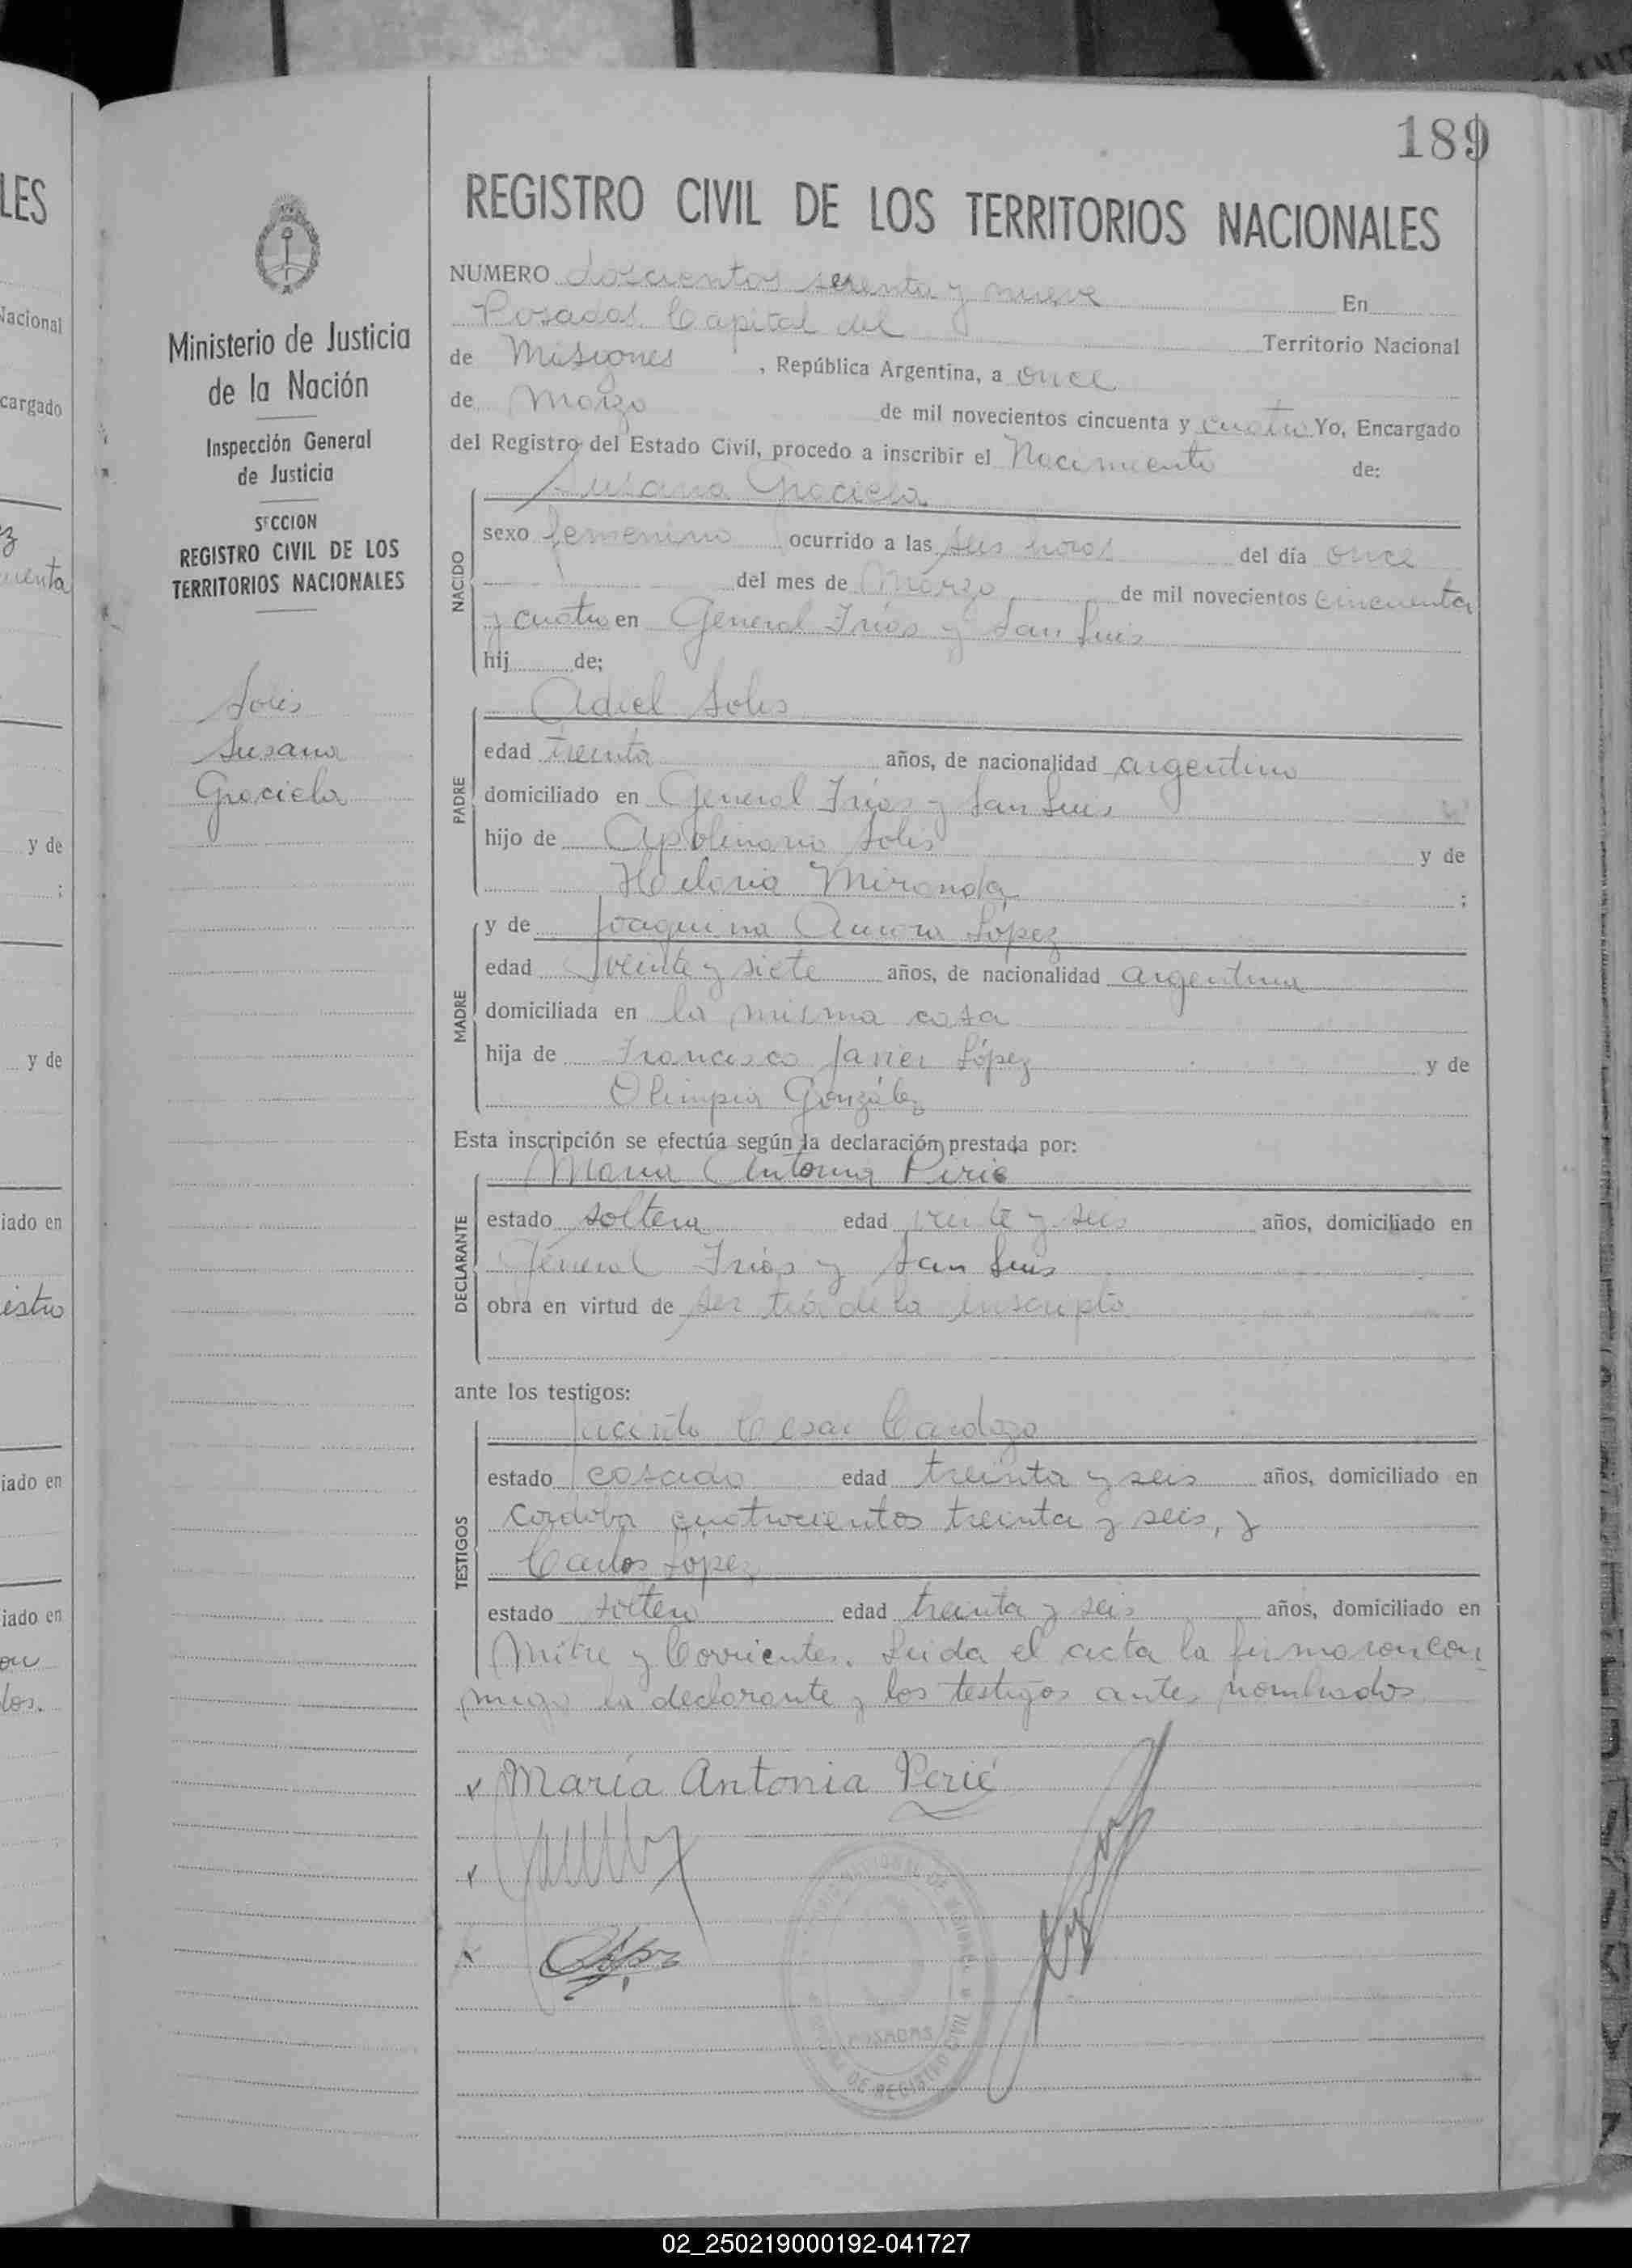 189
REGISTRO CIVIL DE LOS TERRITORIOS NACIONALES
NUMERO doscientos y nueve En
Posadas Capital del Territorio Nacional
de Misiones, República Argentina, a once
de Marzo de mil novecientos cincuenta y cuatro Yo, Encargado
del Registro del Estado Civil, procedo a inscribir el Nacimiento de:
Susana Graciela
NACIDO
sexo femenino ocurrido a las seis horas del día once
del mes de Marzo de mil novecientos cincuenta
y cuatro en General Frías y San Luis
hij de;
Adiel Solis
PADRE
edad treinta años, de nacionalidad argentino
domiciliado en General Frías y San Luis
hijo de Apolinario Solis y de
Miranda ;
y de Joaquina Aurora López
MADRE
edad veinte y siete años, de nacionalidad argentina
domiciliada en la misma casa
hija de Francisco Javier López y de
Olimpia González
Esta inscripción se efectúa según la declaración prestada por:
María Antonia Perié
DECLARANTE
estado soltera edad y seis años, domiciliado en
General Frías y San Luis
obra en virtud de ser tía de la inscripta
ante los testigos:
Jacinto Cesar Cardozo
TESTIGOS
estado casado edad treinta y seis años, domiciliado en
Cordoba cuatrocientos treinta y seis, y
Carlos López
estado soltero edad treinta y seis años, domiciliado en
Mitre y Corrientes. Leida el acta la firmaron con
migo la declarante y los testigos antes nombrados
María Antonia Perié
POSADAS
DE REGISTRO CIVIL
Ministerio de Justicia
de la Nación
Inspección General
de Justicia
SECCION
REGISTRO CIVIL DE LOS
TERRITORIOS NACIONALES
Solis
Susana
Graciela
LES
Nacional
cargado
y de
;
y de
iado en
iado en
iado en
02_250219000192-041727